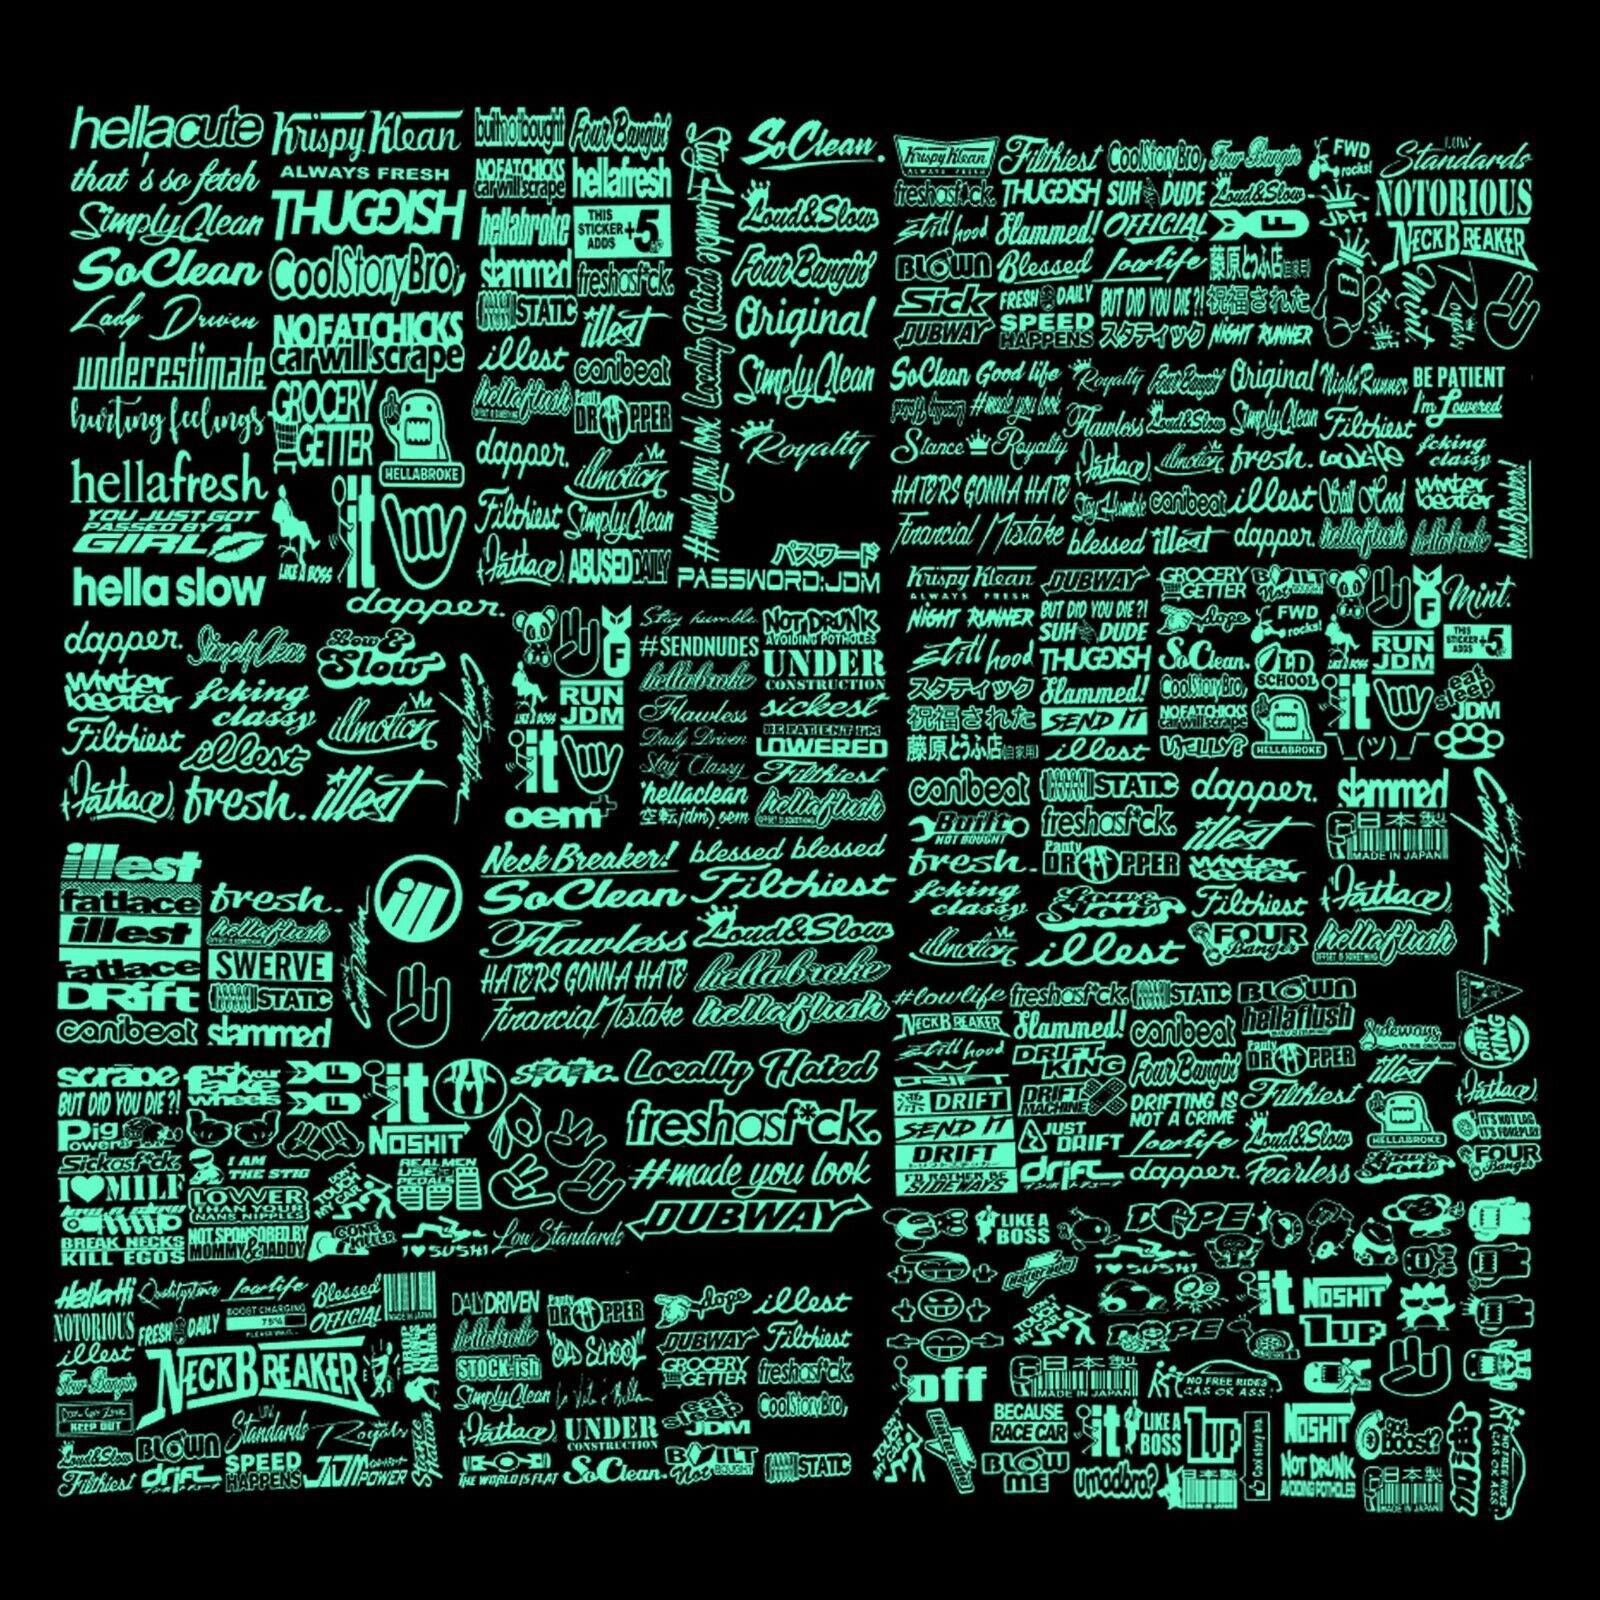 hellacute
that's so fetch
Simply Clean
SoClean
Lady Driven
underestimate
hurting feelings
hellafresh
YOU JUST GOT
PASSED BY A
GIRL
hella slow
Krispy Klean
ALWAYS FRESH
THUGGISH
CoolStoryBro,
NO FAT CHICKS
car will scrape
GROCERY
GETTER
HELLABROKE
LIKE A BOSS
it
dapper.
builtnotbought
NO FAT CHICKS
car will scrape
hellabroke
slammed
STATIC
illest
hellaflush
dapper.
Filthiest
Fatlace
Four Bangin'
hellafresh
THIS
STICKER
ADDS
+5
HP
freshasf*ck.
illest
canibeat
Panty
DROPPER
illmotion
Simply Clean
ABUSED DAILY
Stay Humble
#made you look
Locally Hated
SoClean.
Loud&Slow
Four Bangin'
Original
Simply Clean
Royalty
パスワード
PASSWORD:JDM
Krispy Klean
ALWAYS FRESH
freshasf*ck.
still hood
BLOWN
Sick
DUBWAY
Filthiest
THUGGISH
Slammed!
Blessed
FRESH DAILY
SPEED
HAPPENS
CoolStoryBro,
SUH DUDE
OFFICIAL
lowlife
BUT DID YOU DIE?!
スタティック
Four Bangin
Loud&Slow
藤原とうふ店(自家用)
祝福された
NIGHT RUNNER
FWD
rocks!
LOW
Standards
NOTORIOUS
NECKBREAKER
Mint.
SoClean
Good life
#made you look
Stance
Royalty
HATERS GONNA HATE
Financial Mistake
Royalty
Four Bangin'
Flawless
Loud&Slow
Fatlace
illmotion
Stay Humble
canibeat
blessed
illest
Original
Night Runner
Simply Clean
Filthiest
fresh.
LowLife
illest
Still Hood
dapper.
hellaflush
BE PATIENT
I'm Lowered
fcking
classy
winter
beater
hellabroke
Neck Breaker!
dapper.
winter
beater
Filthiest
Fatlace
Simply Clean
fcking
classy
illest
fresh.
Low &
Slow
illmotion
illest
F
LIKE A BOSS
RUN
JDM
it
oem+
Stay humble.
#SENDNUDES
hellabroke
Flawless
Daily Driven
Stay Classy
hellaclean
空転jdm)oem
NOT DRUNK
AVOIDING POTHOLES
UNDER
CONSTRUCTION
sickest
BE PATIENT I'M
LOWERED
Filthiest
hellaflush
Krispy Klean
ALWAYS FRESH
NIGHT RUNNER
still hood
スタティック
祝福された
藤原とうふ店(自家用)
DUBWAY
BUT DID YOU DIE?!
SUH DUDE
THUGGISH
Slammed!
SEND IT
illest
GROCERY
GETTER
dope
SoClean.
CoolStoryBro,
NO FAT CHICKS
car will scrape
UJELLY?
BUILT
Not BOUGHT
FWD
rocks!
OLD
SCHOOL
HELLABROKE
LIKE A BOSS
it
F
RUN
JDM
¯\_(ツ)_/¯
Mint.
THIS
STICKER
ADDS
+5
eat
sleep
JDM
canibeat
Built
NOT BOUGHT
fresh.
fcking
classy
illmotion
STATIC
freshasf*ck.
Panty
DROPPER
Low &
Slow
illest
dapper.
illest
winter
beater
Filthiest
FOUR
Banger
slammed
日本製
MADE IN JAPAN
Fatlace
hellaflush
illest
fatlace
illest
fatlace
DRift
canibeat
fresh.
hellaflush
SWERVE
STATIC
slammed
ill
Neck Breaker!
SoClean
Flawless
HATERS GONNA HATE
Financial Mistake
blessed blessed
Filthiest
Loud&Slow
hellabroke
hellaflush
#lowlife
NECKBREAKER
still hood
DRIFT
DRIFT
SEND IT
DRIFT
I'D RATHER BE
SIDEWAYS
freshasf*ck.
Slammed!
DRIFT
KING
DRIFT
MACHINE
JUST
DRIFT
drift
STATIC
canibeat
Four Bangin'
DRIFTING IS
NOT A CRIME
lowlife
dapper.
BLOWN
hellaflush
Panty
DROPPER
Filthiest
Loud&Slow
Fearless
Sideways
illest
HELLABROKE
Low &
Slow
DRIFT
KING
Fatlace
IT'S NOT LAG
IT'S FOREPLAY
FOUR
Banger
scrape
BUT DID YOU DIE?!
Pig
Power
Sickasf*ck.
I MILF
BREAK NECKS
KILL EGOS
fuck your
fake
wheels
I AM
THE STIG
LOWER
THAN YOUR
NANS NIPPLES
NOT SPONSORED BY
MOMMY & DADDY
it
NOSHIT
TOUCH
MY CAR
REAL MEN
USE 3
PEDALS
GONE
KILLER
I SUSHI
static.
Low Standards
Locally Hated
freshasf*ck.
#made you look
DUBWAY
Hella Hi
NOTORIOUS
illest
Four Bangin
KEEP OUT
Loud&Slow
Filthiest
lowlife
FRESH DAILY
BOOST CHARGING
75%
PLEASE WAIT...
Blessed
OFFICIAL
NECKBREAKER
BLOWN
drift
LOW
Standards
SPEED
HAPPENS
Royalty
JDM
POWER
DAILYDRIVEN
hellabroke
STOCK-ish
Simply Clean
Fatlace
THE WORLD IS FLAT
Panty
DROPPER
OLD SCHOOL
La Vita è Bella
UNDER
CONSTRUCTION
SoClean.
dope
DUBWAY
GROCERY
GETTER
eat
sleep
JDM
BUILT
Not BOUGHT
illest
Filthiest
freshasf*ck.
CoolStoryBro,
STATIC
LIKE A
BOSS
DOPE
I SUSHI
TOUCH
MY CAR
DOPE
it
NOSHIT
1UP
off
日本製
MADE IN JAPAN
NO FREE RIDES
GAS OR ASS!
TOUCH
MY CAR
BECAUSE
RACE CAR
BLOW
ME
it
LIKE A
BOSS
umadbro?
1UP
Cool story bro.
NOSHIT
NOT DRUNK
AVOIDING POTHOLES
Got
Boost?
日本製
MADE IN JAPAN
NO FREE RIDES
GAS OR ASS!